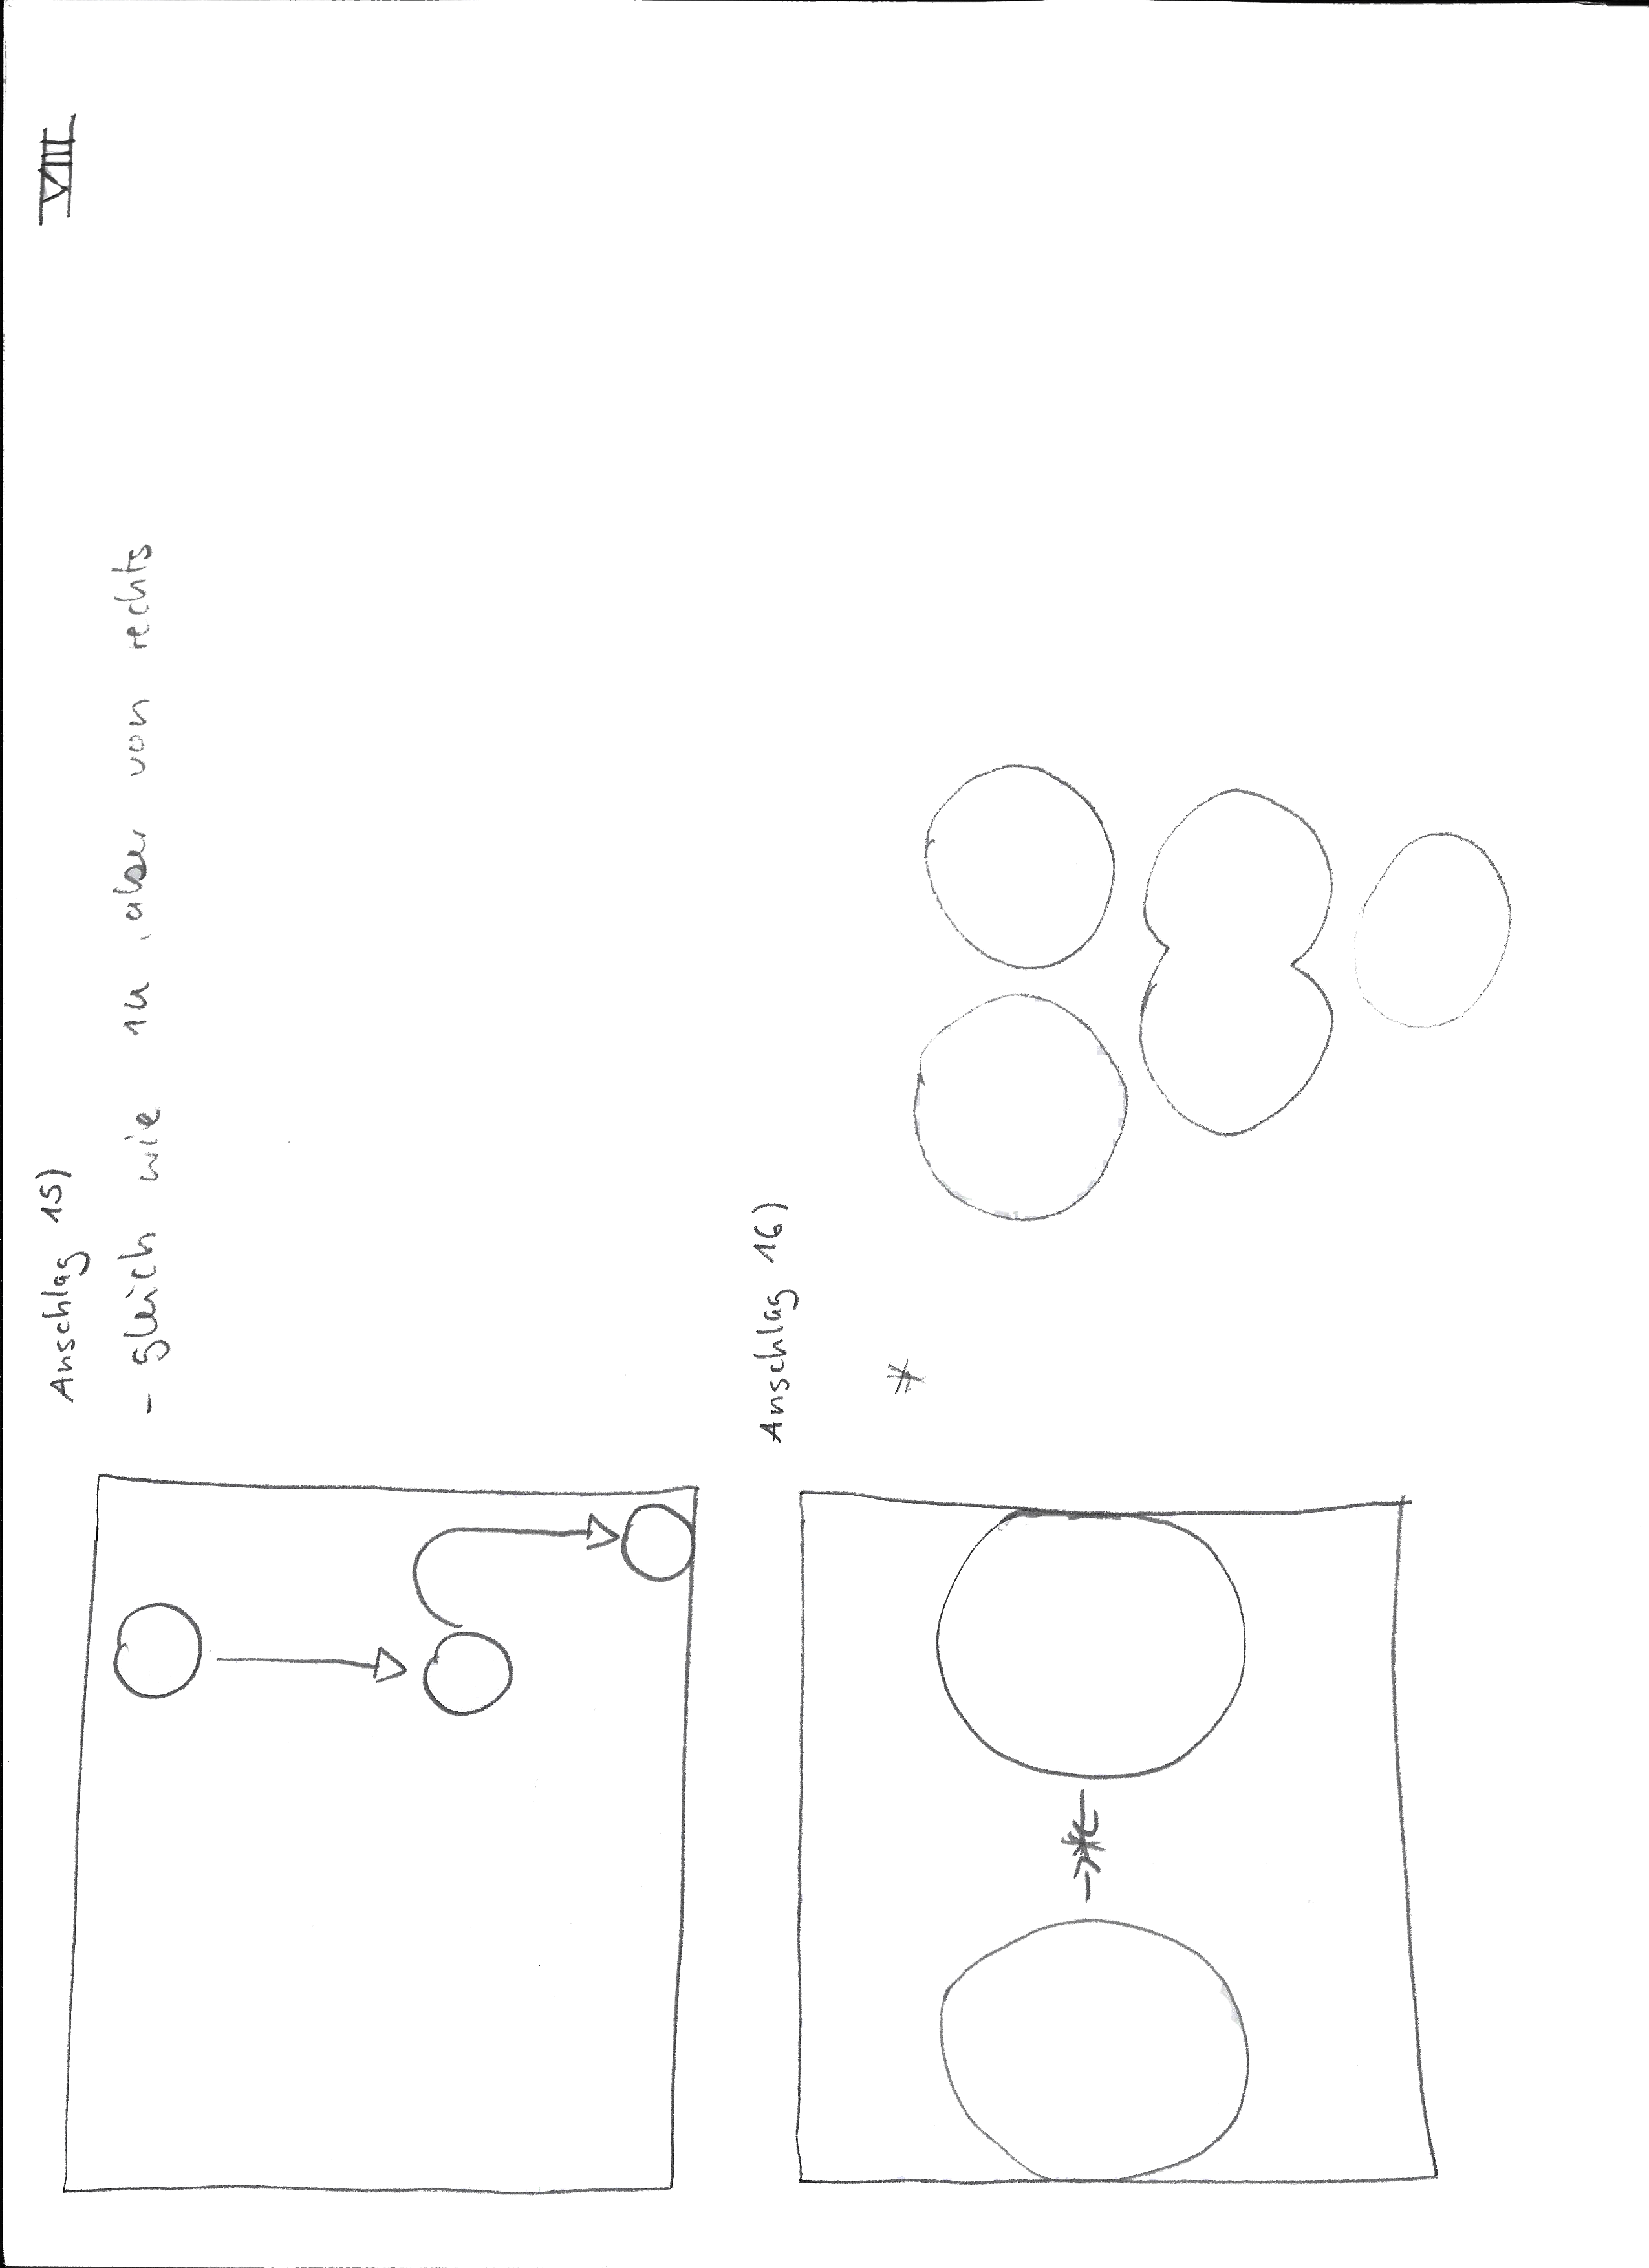 VIII
Anschlag 15)
- gleich wie 14, aber von rechts
Anschlag 16)
#